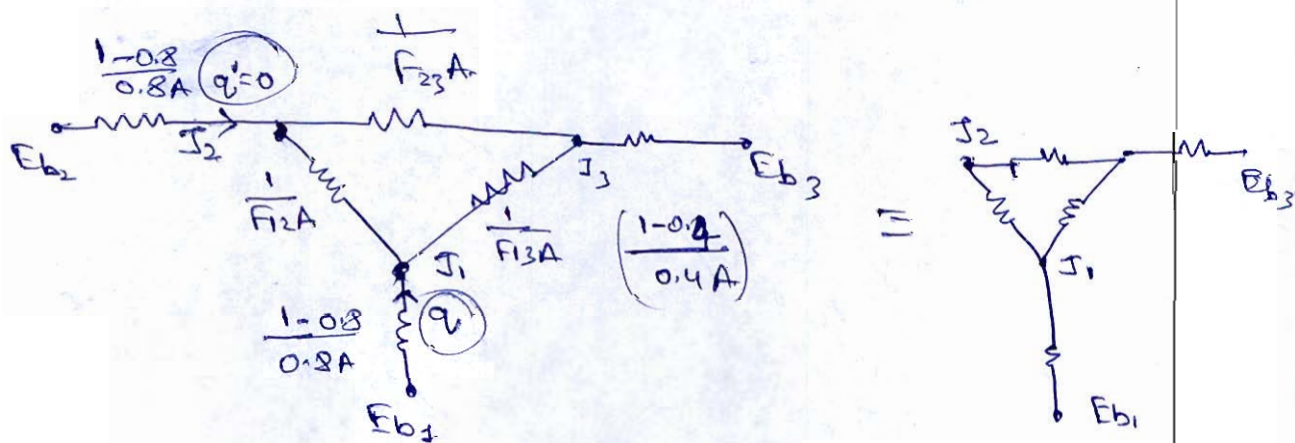 1-0.8
0.8A
q'=0
1
F23A
Eb2
J2
J3
Eb3
1
F12A
1
F13A
(1-0.4
0.4A)
J1
1-0.8
0.8A
q
Eb1
≡
J2
Eb3
J1
Eb1